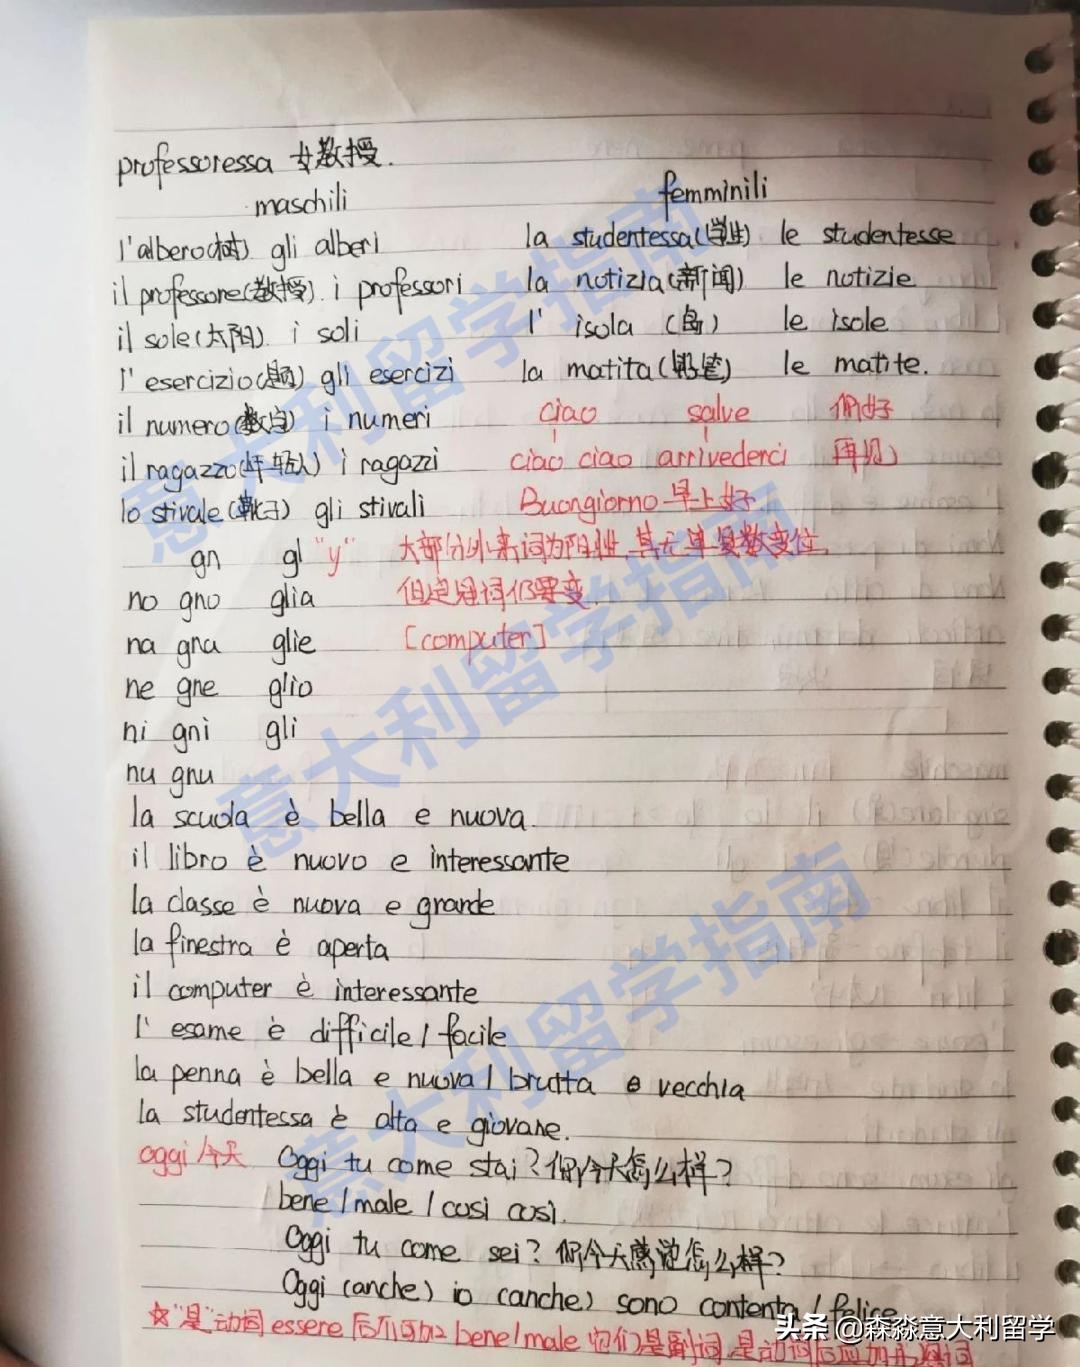 professoressa 女教授.
maschili femminili
l'albero(树) gli alberi la studentessa(学生) le studentesse
il professore(教授). i professori la notizia(新闻) le notizie
il sole(太阳). i soli l' isola (岛) le isole
l' esercizio(题) gli esercizi la matita(铅笔) le matite.
il numero(数字) i numeri ciao salve 你好
il ragazzo(年轻人) i ragazzi ciao ciao arrivederci 再见)
lo stivale(靴子) gli stivali Buongiorno 早上好
gn gl "y" 大部分外来词为阳性,其无单复数变位,
no gno glia 但定冠词仍要变.
na gna glie [computer]
ne gne glio
ni gni gli
nu gnu
la scuola è bella e nuova.
il libro è nuovo e interessante
la classe è nuova e grande
la finestra è aperta
il computer è interessante
l' esame è difficile / facile
la penna è bella e nuova / brutta e vecchia
la studentessa è alta e giovane.
oggi/今天 Oggi tu come stai?你今天怎么样?
bene / male / così così.
Oggi tu come sei?你今天感觉怎么样?
Oggi (anche) io (anche) sono contenta / felice
☆"是"动词 essere 后不可加 bene/male 它们是副词,是动词后应加形容词
意大利留学指南
意大利留学指南
意大利留学指南
头条 @森淼意大利留学